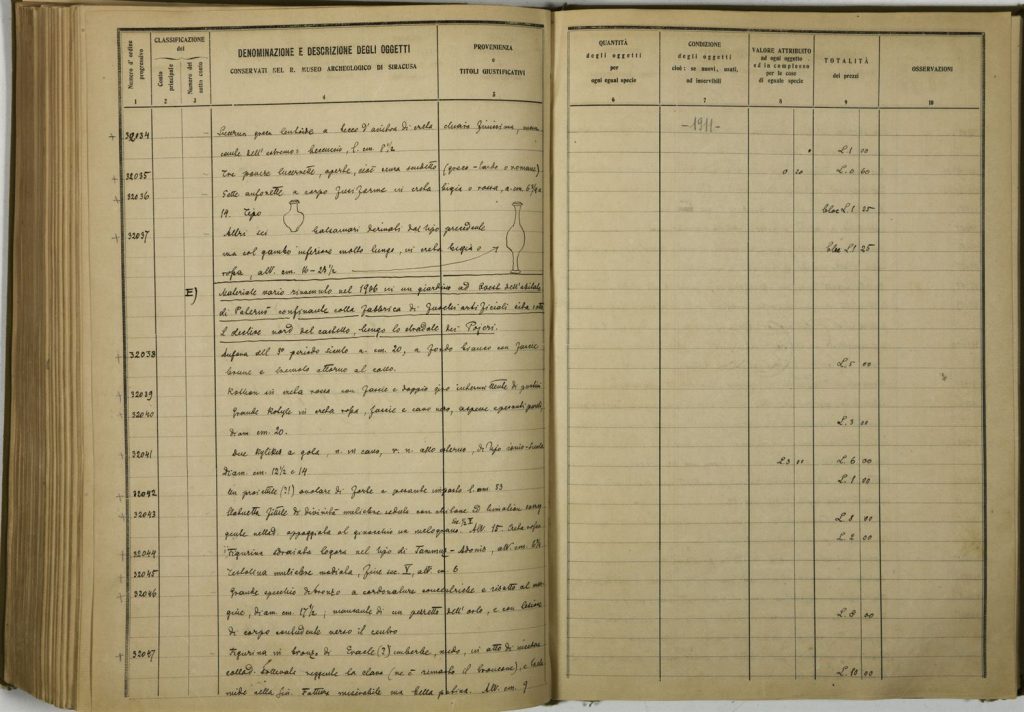 Numero d'ordine progressivo
CLASSIFICAZIONE del
Conto principale
Numero del sotto conto
DENOMINAZIONE E DESCRIZIONE DEGLI OGGETTI
CONSERVATI NEL R. MUSEO ARCHEOLOGICO DI SIRACUSA
PROVENIENZA
o
TITOLI GIUSTIFICATIVI
1 2 3 4 5
32034 Lucerna greca lenticolare a becco d'ancora di creta chiara finissima, man-
cante dell'estremo beccuccio, l. cm. 8 1/2
32035 Tre piccole lucernette, aperte, cioè senza (greco-tarde o romane)
32036 Sette anforette a corpo fusiforme in creta bigia o rossa, a. cm. 6
19. Tipo
32037 Altri sei balsamari derivati dal tipo precedente
ma col gambo inferiore molto lungo, in creta bigia o
rossa, alt. cm. 16-24 1/2
E) Materiale vario rinvenuto nel 1906 in un giardino ad Ovest dell'abitato
di Paternò confinante colla fabbrica di fuochi artificiali sita sotto
il declive nord del castello, lungo lo stradale dei
32038 Anfora del 3° periodo siculo a. cm. 20, a fondo bianco con fascie
brune e attorno al collo.
32039 Kothon in creta rossa con fascie e doppio giro intermittente di puntini
32040 Grande Kotyle in creta rossa, fascie e cavo nero,
diam. cm. 20.
32041 Due Kylikes a gola, n. in cavo, r. n. allo esterno, di tipo ionio-
diam. cm. 12 1/2 e 14
32042 Un proiettile (?!) anulare di forte e pesante impasto l. cm. 53
32043 Statuetta fittile di divinità muliebre seduta con chitone ed himation
gente nella d. appoggiata al ginocchio un melograno. Sec. V Alt. 15. Creta rossa
32044 Figurina logora nel tipo di Tammuz-Adonis, alt. cm.
32045 Testolina muliebre modiata, fine sec. V, alt. cm. 6
32046 Grande specchio di bronzo a cordonature concentriche e ribatto al mar-
gine, diam. cm. 17 1/2; mancante di un pezzetto dell'orlo, e con lesione
di corpo contundente verso il centro
32047 Figurina in bronzo di Eracle (?) imberbe, nudo, in atto di incedere
colla d. sollevata reggente la clava (ne è rimasto il troncone), e la le-
nide nella sin. Fattura miserabile ma bella patina. Alt. cm. 9
QUANTITÀ
degli oggetti
per
ogni egual specie
CONDIZIONE
degli oggetti
cioè: se nuovi, usati,
od inservibili
VALORE ATTRIBUITO
ad ogni oggetto
ed in complesso
per le cose
di eguale specie
TOTALITÀ
dei prezzi
OSSERVAZIONI
6 7 8 9 10
-1911-
L. 1 00
0 20 L. 0 60
bloc L. 1 25
bloc L. 1 25
L. 5 00
L. 3 00
L. 3 00 L. 6 00
L. 1 00
L. 8 00
L. 2 00
L. 8 00
L. 10 00